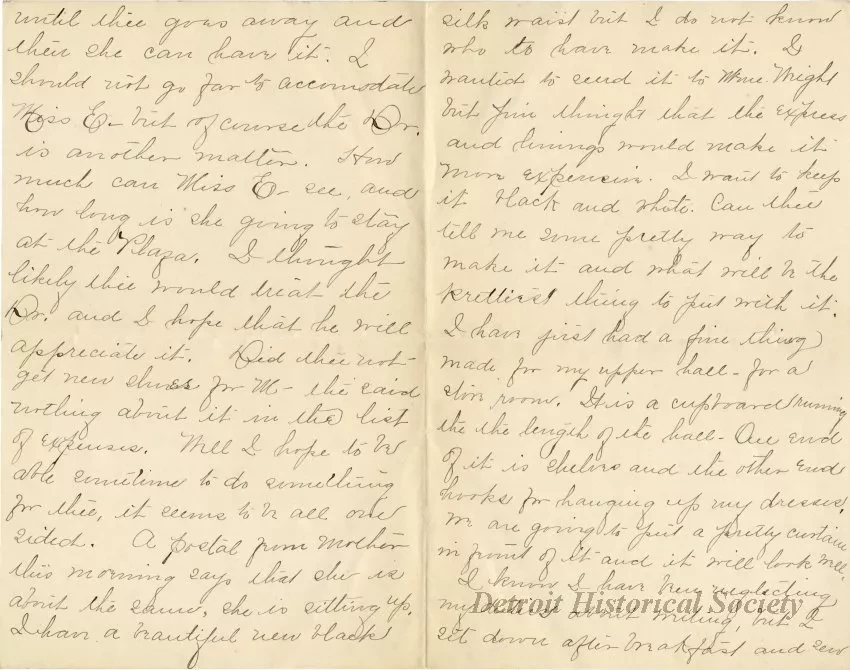 until thee goes away and
then she can have it. I
should not go far to accomodate
Miss E— but of course the Dr.
is another matter. How
much can Miss E— see, and
how long is she going to stay
at the Plaza. I thought
likely thee would treat the
Dr. and I hope that he will
appreciate it. Did thee not
get new shoes for M— thee said
nothing about it in the list
of expenses. Well I hope to be
able sometime to do something
for thee, it seems to be all one
sided. A postal from Mother
this morning says that she is
about the same, she is sitting up.
I have a beautiful new black
silk waist but I do not know
who to have make it. I
wanted to send it to Mme. Wright
but Jim thought that the express
and linings would make it
more expensive. I want to keep
it black and white. Can thee
tell me some pretty way to
make it and what will be the
prettiest thing to put with it.
I have just had a fine thing
made for my upper hall - for a
store room. It is a cupboard running
the the length of the hall - One end
of it is shelves and the other end
hooks for hanging up my dresses.
We are going to put a pretty curtain
in front of it and it will look well.
I know I have been neglecting
my about writing, but I
set down after breakfast and sew
Detroit Historical Society